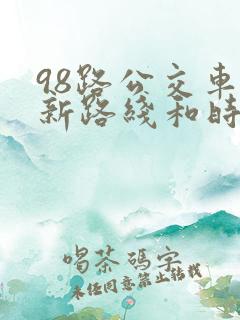 98路公交车
新路线和时
喝茶码字
未经同意禁止转载